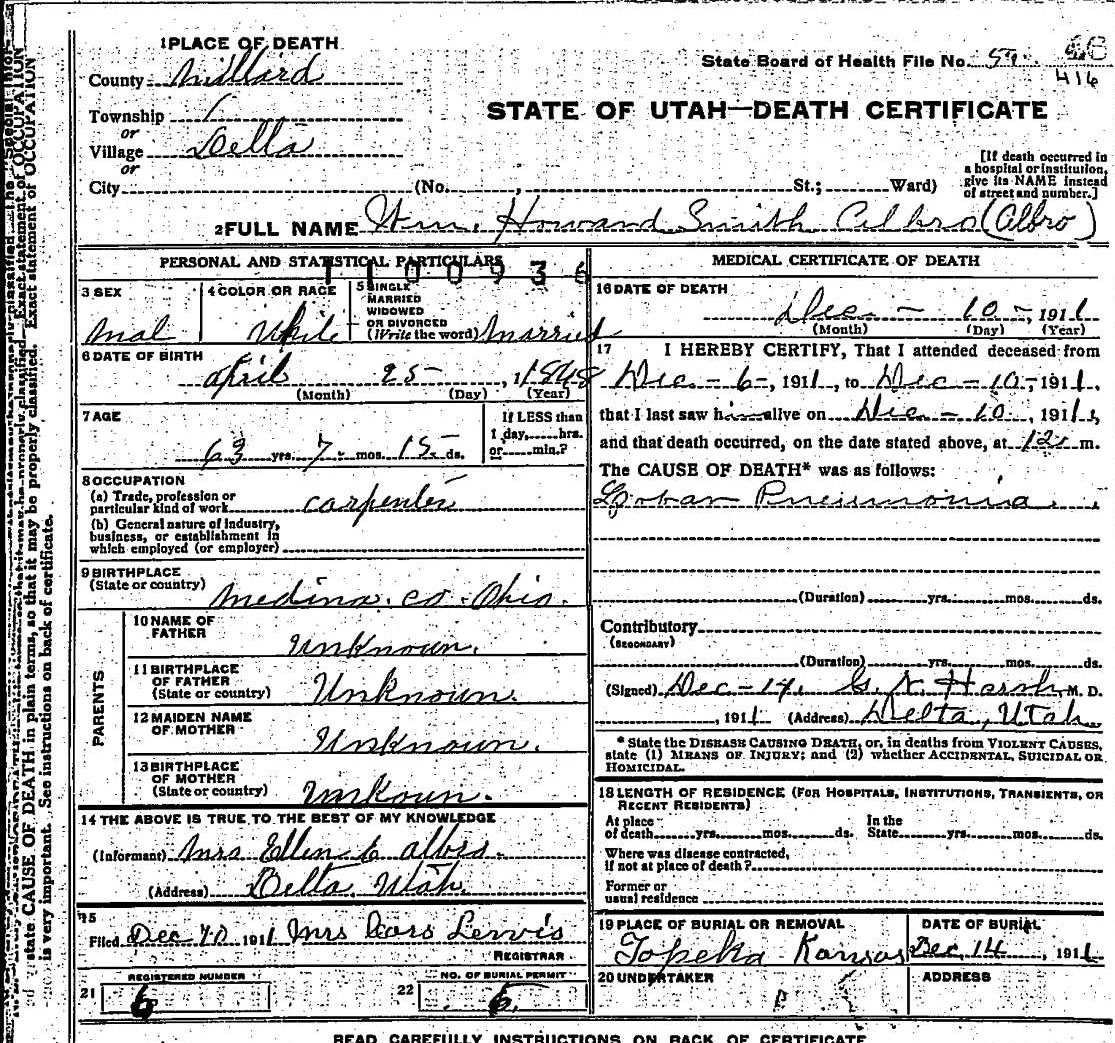 1 PLACE OF DEATH
County Millard
State Board of Health File No. 416
Township
or
Village Delta
or
City (No. , St.; Ward)
STATE OF UTAH—DEATH CERTIFICATE
[If death occurred in
a hospital or institution,
give its NAME instead
of street and number.]
2 FULL NAME Wm. Howard Smith Albro (Albro)
PERSONAL AND STATISTICAL PARTICULARS
1100936
3 SEX
Mal
4 COLOR OR RACE
White
5 SINGLE
MARRIED
WIDOWED
OR DIVORCED
(Write the word) Married
6 DATE OF BIRTH
April 25 , 1848
(Month) (Day) (Year)
7 AGE
63 yrs. 7 mos. 15 ds.
If LESS than
1 day, hrs.
or min.?
8 OCCUPATION
(a) Trade, profession or
particular kind of work carpenter
(b) General nature of industry,
business, or establishment in
which employed (or employer)
9 BIRTHPLACE
(State or country) Medina co - Ohio.
PARENTS
10 NAME OF
FATHER
Unknoun.
11 BIRTHPLACE
OF FATHER
(State or country) Unknoun.
12 MAIDEN NAME
OF MOTHER
Unknoun.
13 BIRTHPLACE
OF MOTHER
(State or country) Unkoun.
14 THE ABOVE IS TRUE TO THE BEST OF MY KNOWLEDGE
(Informant) Mrs Ellen
(Address) Delta, Utah.
15
Filed Dec 1911 Mrs Lewis
REGISTRAR
REGISTERED NUMBER
21 6
NO. OF BURIAL PERMIT
22 6
MEDICAL CERTIFICATE OF DEATH
16 DATE OF DEATH
Dec - 10 -, 1911
(Month) (Day) (Year)
17 I HEREBY CERTIFY, That I attended deceased from
Dec - 6 -, 1911, to Dec - 10 -, 1911,
that I last saw him alive on Dec - 10, 1911,
and that death occurred, on the date stated above, at m.
The CAUSE OF DEATH* was as follows:
Lobar Pneumonia
(Duration) yrs. mos. ds.
Contributory
(SECONDARY)
(Duration) yrs. mos. ds.
(Signed) Dec - 14, M. D.
, 1911 (Address) Delta, Utah.
* State the DISEASE CAUSING DEATH, or, in deaths from VIOLENT CAUSES,
state (1) MEANS OF INJURY; and (2) whether ACCIDENTAL, SUICIDAL OR
HOMICIDAL.
18 LENGTH OF RESIDENCE (FOR HOSPITALS, INSTITUTIONS, TRANSIENTS, OR
RECENT RESIDENTS)
At place
of death yrs. mos. ds.
In the
State yrs. mos. ds.
Where was disease contracted,
if not at place of death?
Former or
usual residence
19 PLACE OF BURIAL OR REMOVAL
Topeka Kansas
DATE OF BURIAL
Dec. 14, 1911
20 UNDERTAKER
ADDRESS
READ CAREFULLY INSTRUCTIONS ON BACK OF CERTIFICATE
state CAUSE OF DEATH in plain terms, so that it may be properly classified. Exact statement of OCCUPATION
is very important. See instructions on back of certificate.